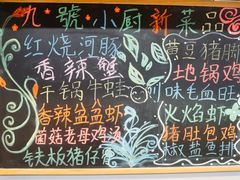 九號小厨新菜品
红烧河豚
香辣蟹
干锅牛蛙
香辣盆盆虾
菌菇老母鸡汤
铁板猪仔
黄豆猪脚
土地锅鸡
味毛血旺
火焰虾
猪肚包鸡
椒盐鱼排